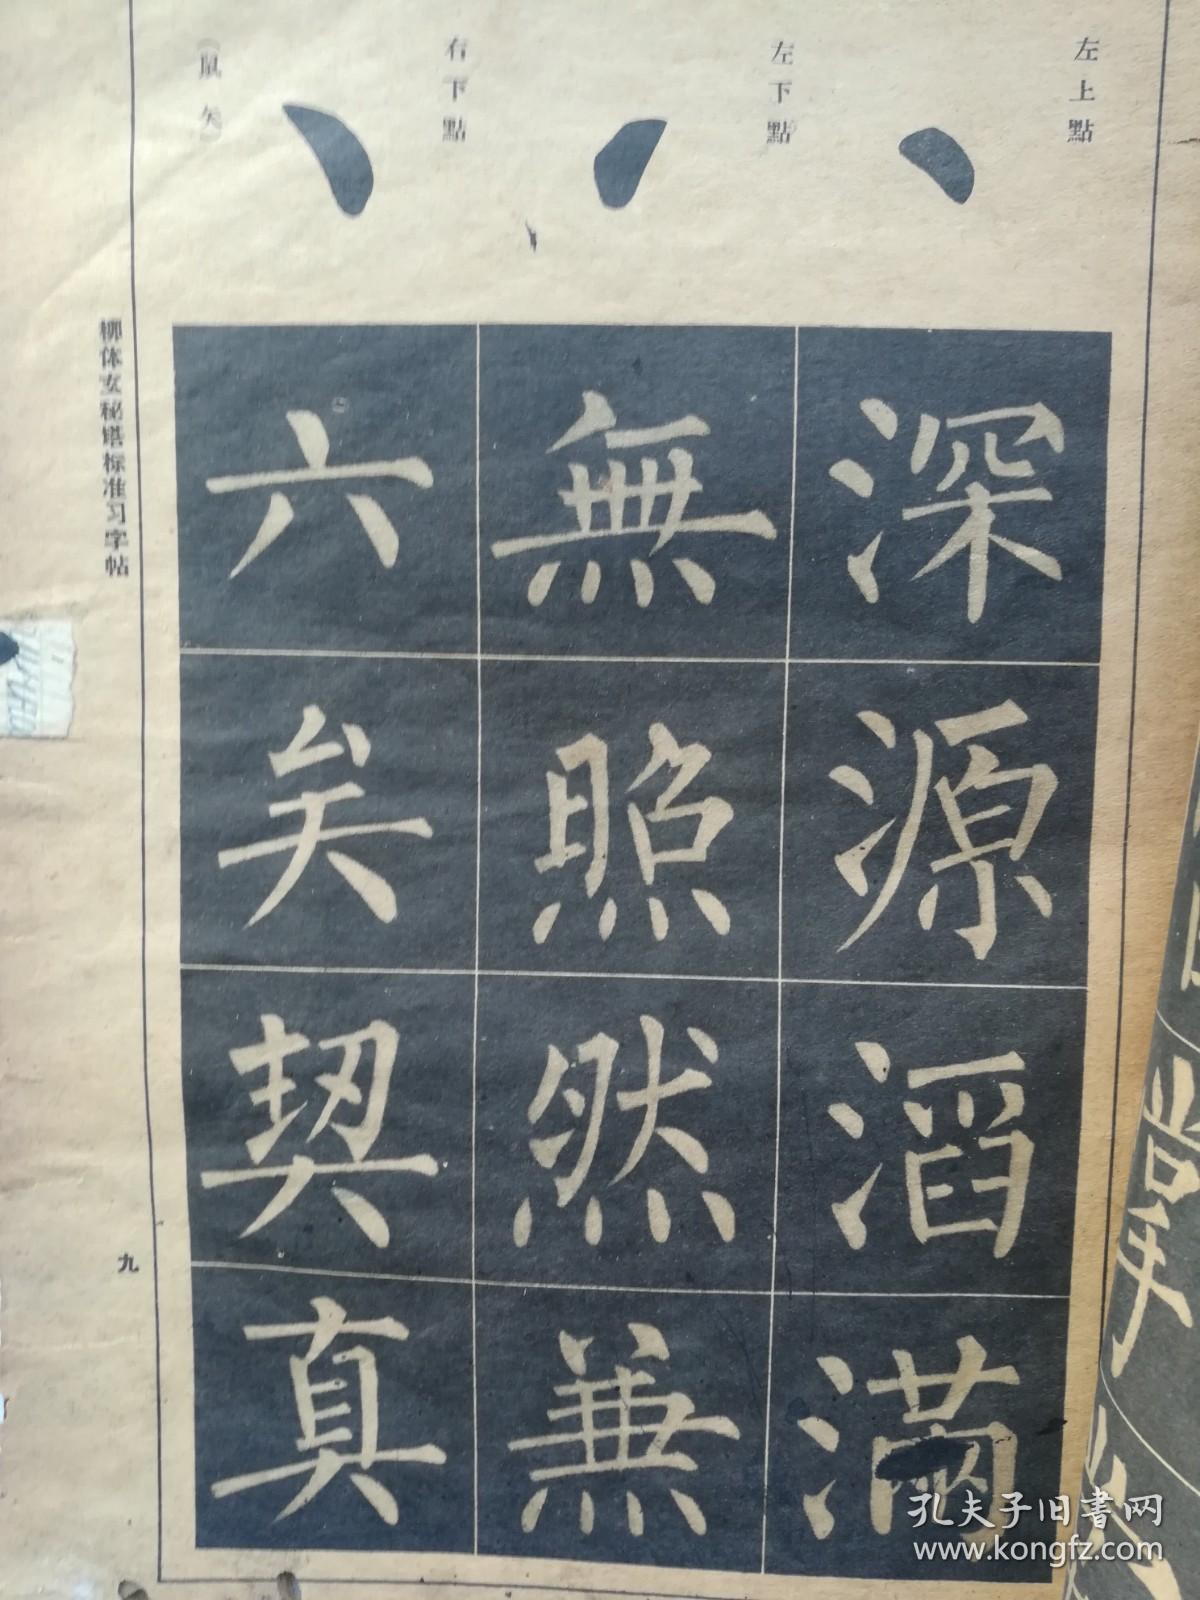 左上點
左下點
右下點
(鼠矢)
深源滔滿
無照然兼
六矣契真
柳体玄秘塔标准习字帖
九
孔夫子旧書网
www.kongfz.com